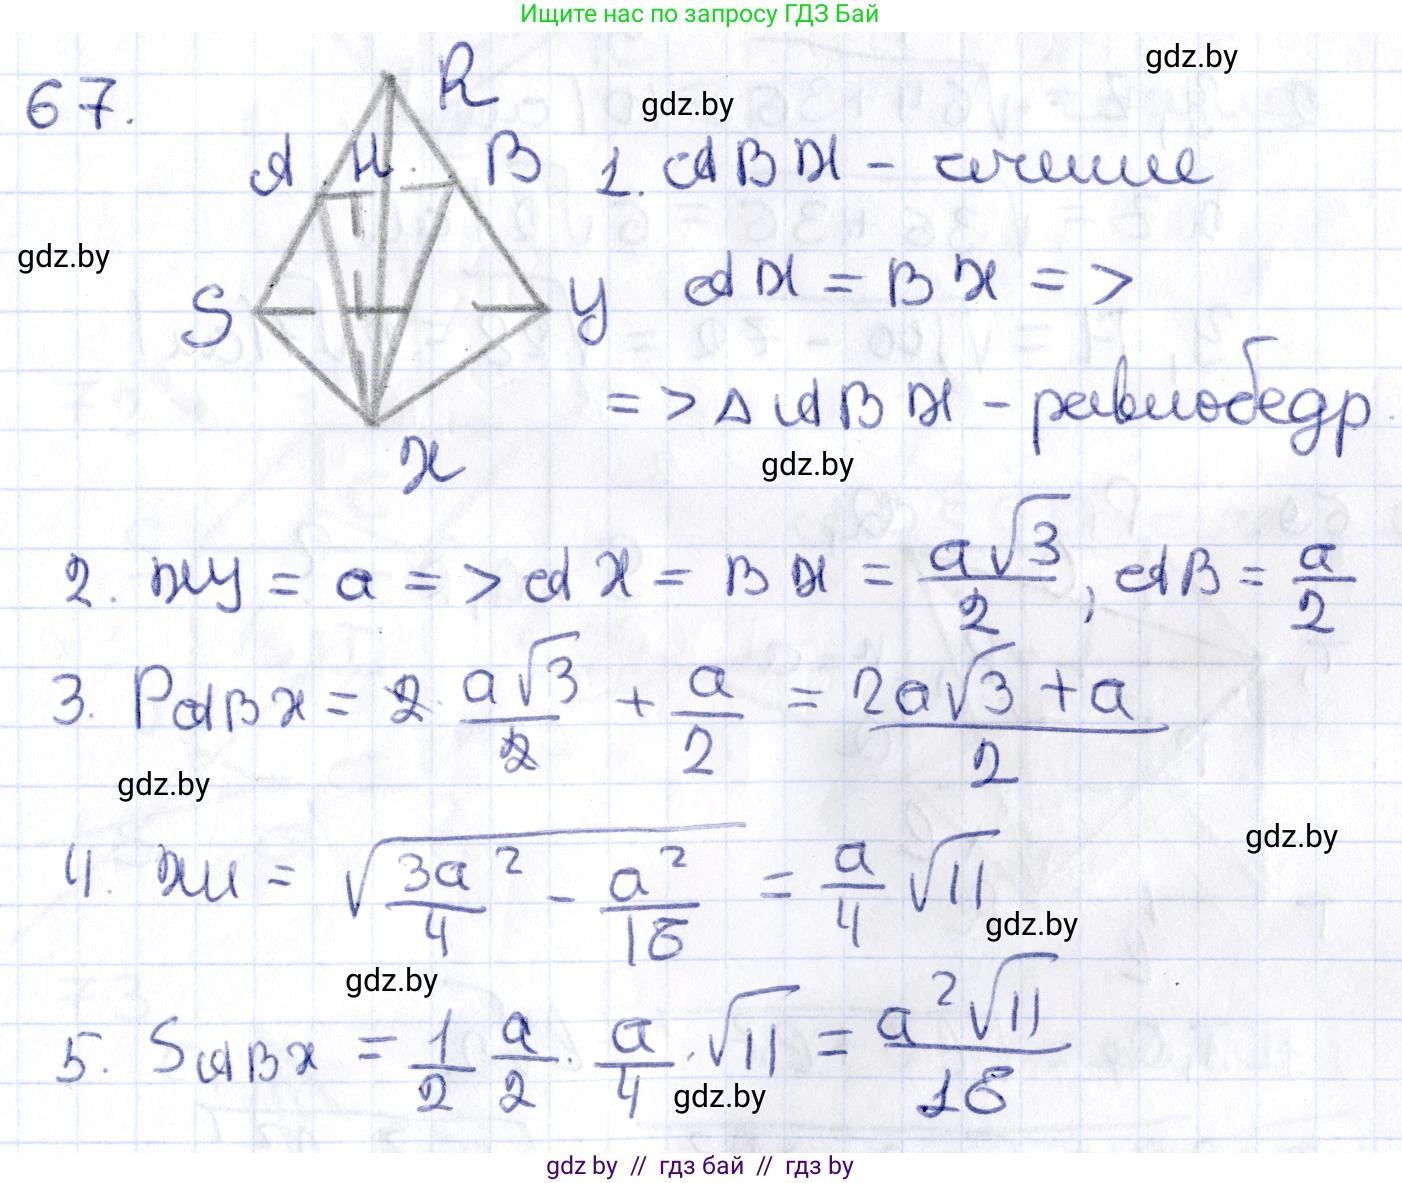 Ищите нас по запросу ГДЗ Бай
gdz.by
gdz.by
67.
R
A H B
1. ABX - сечение
gdz.by
S
Y
AX = BX =>
=> Δ ABX - равнобедр.
gdz.by
X
2. XY = a => AX = BX = a√3/2, AB = a/2
3. P ABX = 2 · a√3/2 + a/2 = 2a√3 + a/2
gdz.by
gdz.by
4. XH = √3a²/4 - a²/16 = a/4 √11
gdz.by
gdz.by
5. S ABX = 1/2 a/2 · a/4 · √11 = a²√11/16
gdz.by
gdz by // гдз бай // гдз by